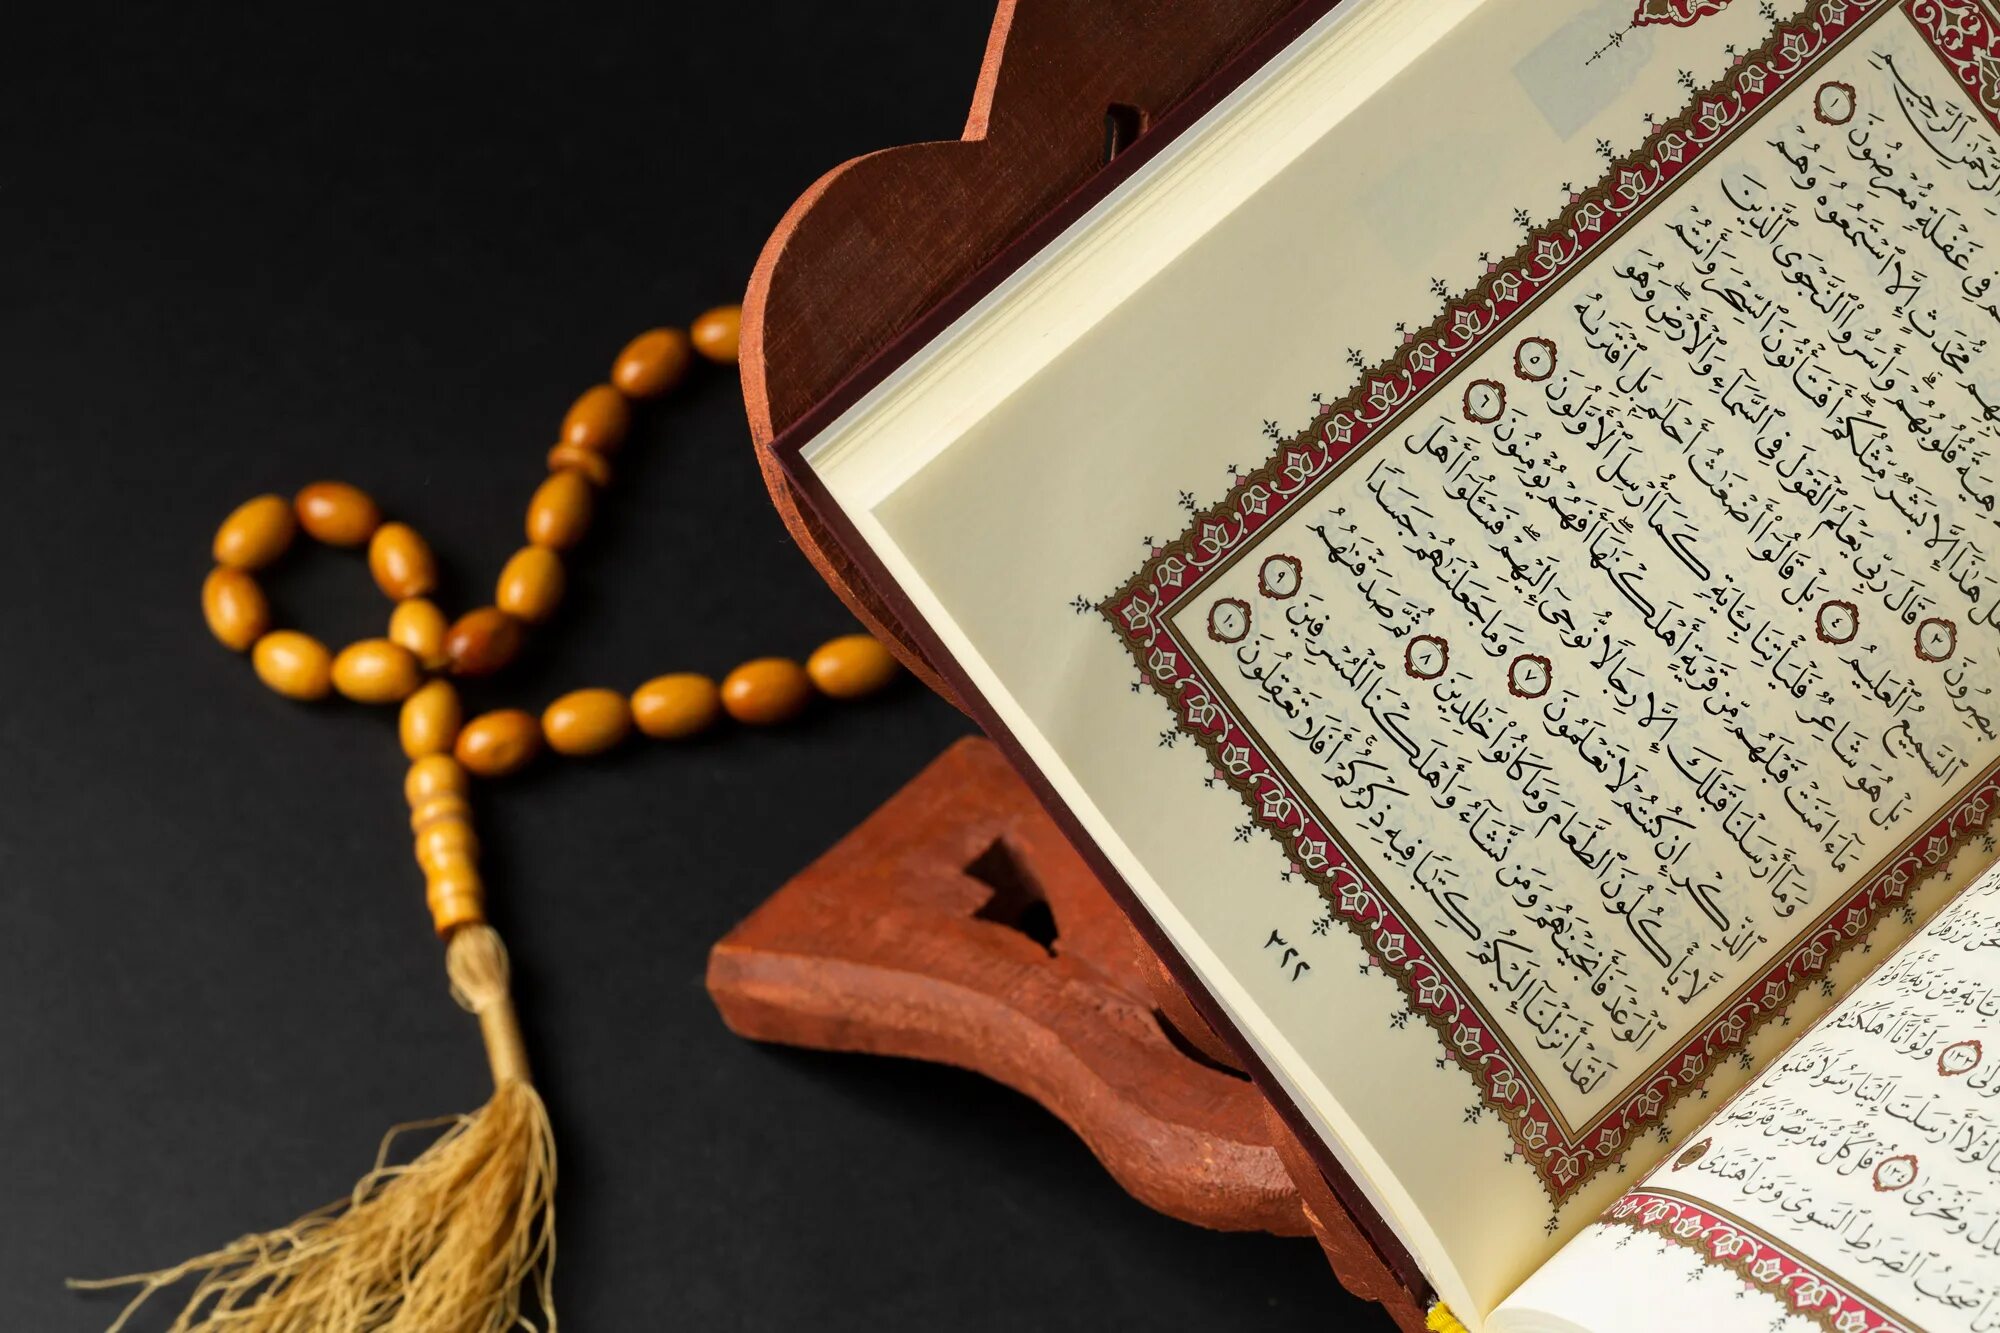 ٱلرَّحْمَٰنِ ٱلرَّحِيمِ
فِى غَفْلَةٍ مُّعْرِضُونَ ١
مُّحْدَثٍ إِلَّا ٱسْتَمَعُوهُ وَهُمْ
قُلُوبُهُمْ ۗ وَأَسَرُّوا۟ ٱلنَّجْوَى ٱلَّذِينَ
هَلْ هَٰذَآ إِلَّا بَشَرٌ مِّثْلُكُمْ ۖ أَفَتَأْتُونَ ٱلسِّحْرَ وَأَنتُمْ
تُبْصِرُونَ ٣ قَالَ رَبِّى يَعْلَمُ ٱلْقَوْلَ فِى ٱلسَّمَآءِ وَٱلْأَرْضِ ۖ وَهُوَ
ٱلسَّمِيعُ ٱلْعَلِيمُ ٤ بَلْ قَالُوٓا۟ أَضْغَٰثُ أَحْلَٰمٍۭ بَلِ ٱفْتَرَىٰهُ
بَلْ هُوَ شَاعِرٌ فَلْيَأْتِنَا بِـَٔايَةٍ كَمَآ أُرْسِلَ ٱلْأَوَّلُونَ ٥
مَآ ءَامَنَتْ قَبْلَهُم مِّن قَرْيَةٍ أَهْلَكْنَٰهَآ ۖ أَفَهُمْ يُؤْمِنُونَ ٦
وَمَآ أَرْسَلْنَا قَبْلَكَ إِلَّا رِجَالًا نُّوحِىٓ إِلَيْهِمْ ۖ فَسْـَٔلُوٓا۟ أَهْلَ
ٱلذِّكْرِ إِن كُنتُمْ لَا تَعْلَمُونَ ٧ وَمَا جَعَلْنَٰهُمْ جَسَدًا
لَّا يَأْكُلُونَ ٱلطَّعَامَ وَمَا كَانُوا۟ خَٰلِدِينَ ٨ ثُمَّ صَدَقْنَٰهُمُ
ٱلْوَعْدَ فَأَنجَيْنَٰهُمْ وَمَن نَّشَآءُ وَأَهْلَكْنَا ٱلْمُسْرِفِينَ ٩
لَقَدْ أَنزَلْنَآ إِلَيْكُمْ كِتَٰبًا فِيهِ ذِكْرُكُمْ ۖ أَفَلَا تَعْقِلُونَ ١٠
٣٢٢
نَّحْنُ نَرْزُقُكَ
بِـَٔايَةٍ مِّن رَّبِّهِۦٓ ۚ أَوَلَمْ
١٣٣ وَلَوْ أَنَّآ أَهْلَكْنَٰهُم
لَوْلَآ أَرْسَلْتَ إِلَيْنَا رَسُولًا فَنَتَّبِعَ
وَنَخْزَىٰ ١٣٤ قُلْ كُلٌّ مُّتَرَبِّصٌ فَتَرَبَّصُوا۟
أَصْحَٰبُ ٱلصِّرَٰطِ ٱلسَّوِىِّ وَمَنِ ٱهْتَدَىٰ